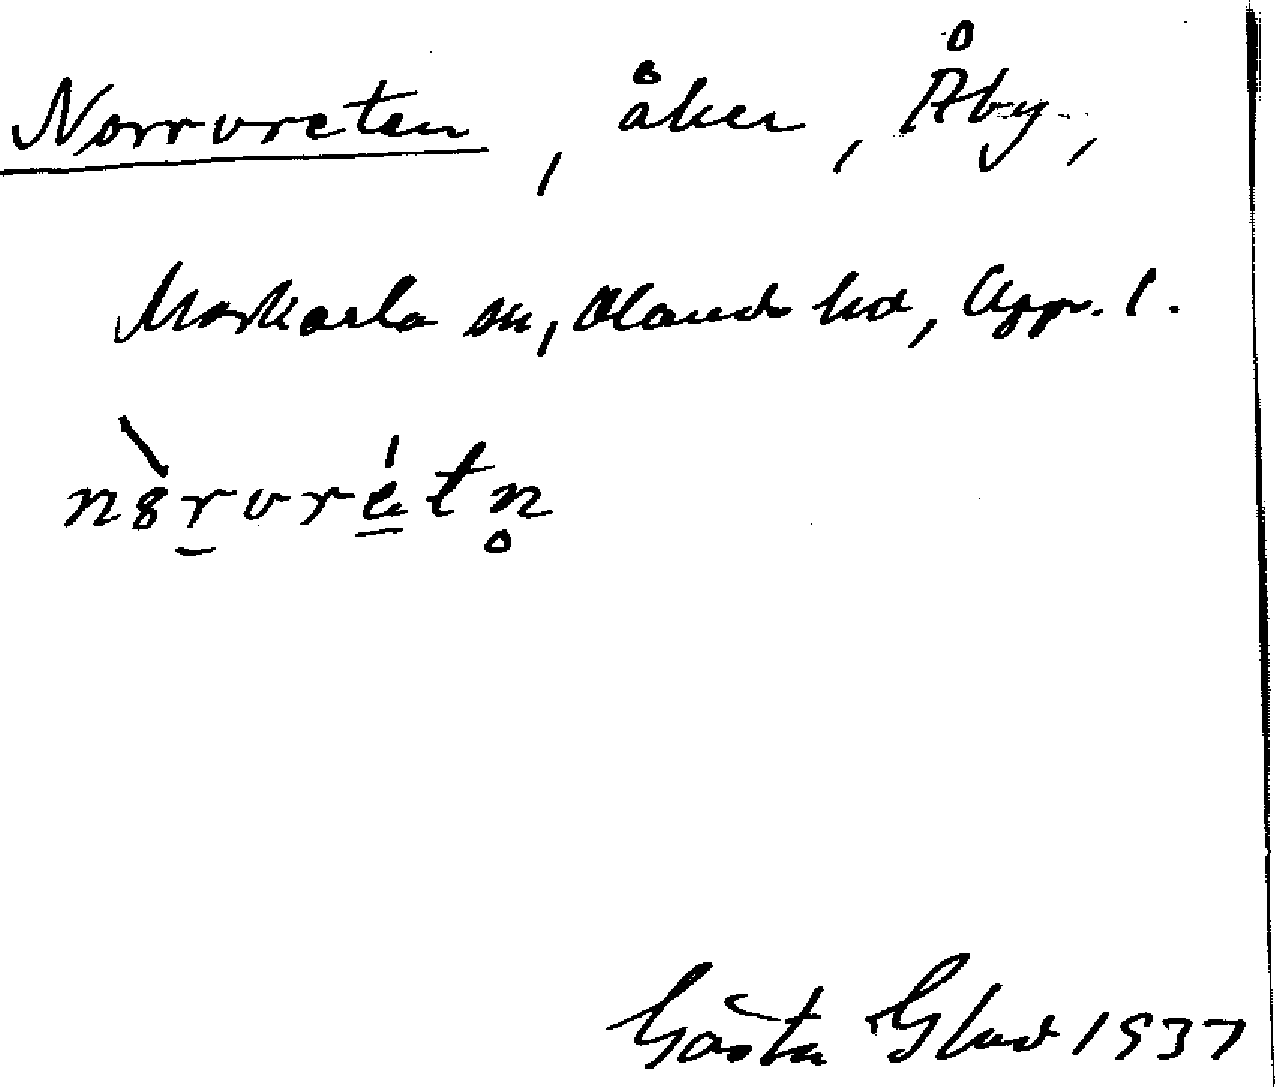 Norrvreten, åker, Åby,
Morkarla sn, Olands hd, Upps. l.
nörvrétn
Gösta Glad 1937